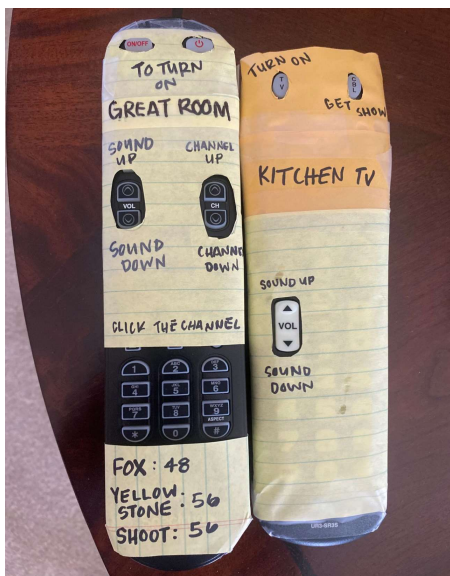 ON/OFF
TO TURN
ON
GREAT ROOM
SOUND
UP
CHANNEL
UP
VOL
CH
SOUND
DOWN
CHANNEL
DOWN
CLICK THE CHANNEL
1 ABC 2 DEF 3
GHI 4 JKL 5 MNO 6
PQRS 7 TUV 8 WXYZ 9
ASPECT
* 0 #
FOX: 48
YELLOW
STONE: 56
SHOOT: 56
TURN ON
TV
CBL
GET SHOW
KITCHEN TV
SOUND UP
VOL
SOUND
DOWN